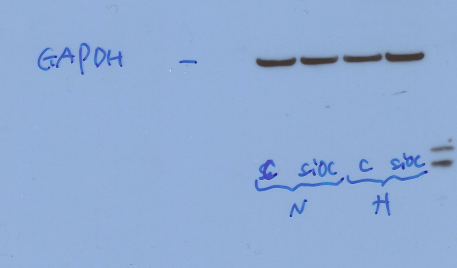 GAPDH -
C siOC C siOC
N H